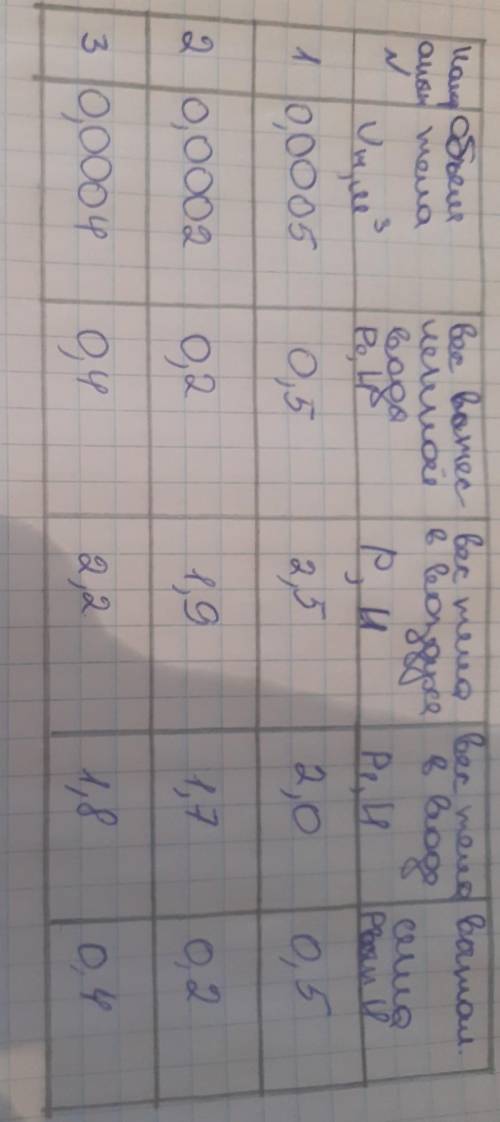 N
Объем
тела
Vт, м³
вес вытес
ненной
воды
P₀, Н
вес тела
в воздухе
P, Н
вес тела
в воде
P₁, Н
вытал.
сила
1 0,0005 0,5 2,5 2,0 0,5
2 0,0002 0,2 1,9 1,7 0,2
3 0,0004 0,4 2,2 1,8 0,4